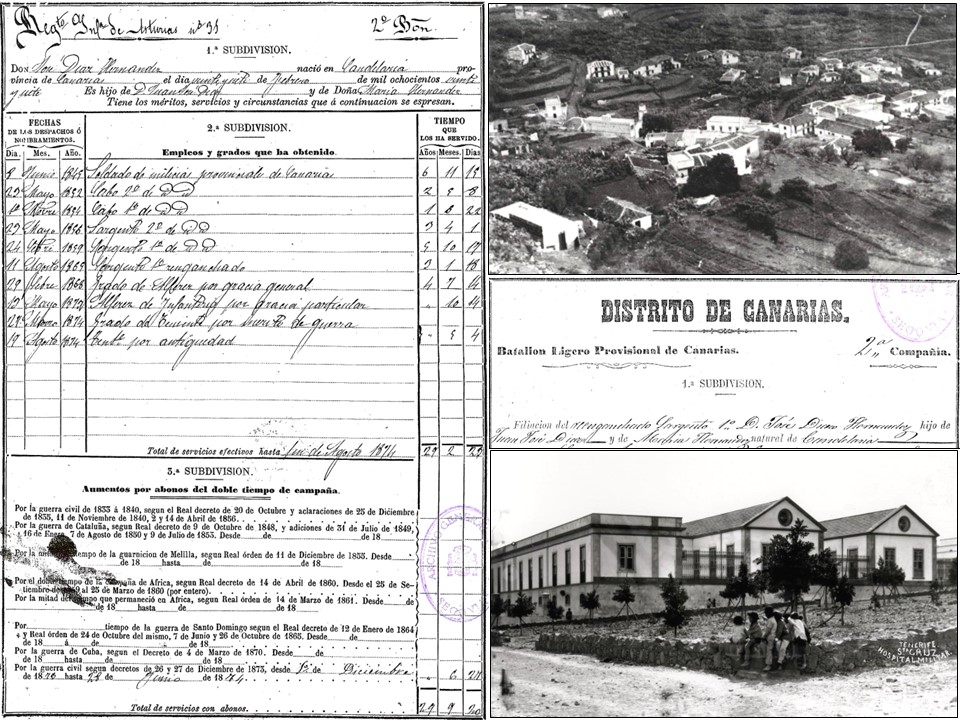 Regto Infa de Asturias nº 31 2º Bon.
1.ª SUBDIVISION.
DON José Diaz Hernandez nació en Candelaria pro-
vincia de Canarias el dia veinte y siete de Febrero de mil ochocientos veinte
y siete Es hijo de D. Juan José Diaz y de Doña Maria Hernandez
Tiene los méritos, servicios y circunstancias que á continuacion se espresan.
FECHAS
DE LOS DESPACHOS Ó
NOMBRAMIENTOS.
Dia. Mes. Año.
2.ª SUBDIVISION.
Empleos y grados que ha obtenido.
TIEMPO
QUE
LOS HA SERVIDO.
Años Meses. Dias
8 Junio 1845 Soldado de milicias provinciales de Canarias 6 11 15
23 Mayo 1852 Cabo 2º de id id 2 5 8
1º Novre 1854 Cabo 1º de id id 1 6 22
23 Mayo 1856 Sargento 2º de id id 3 4 1
24 1859 Sargento 1º de id id 5 10 17
11 Agosto 1865 Sargento 1º reenganchado 3 1 18
29 1868 Grado de Alferez por gracia general 4 7 14
13 Mayo 1873 Alferez de Infanteria por gracia particular " 10 14
27 Marzo 1874 Grado de Teniente por merito de guerra
19 Agosto 1874 Tente por antigüedad " 5 4
Total de servicios efectivos hasta fin de Agosto 1874 29 2 23
3.ª SUBDIVISION.
Aumentos por abonos del doble tiempo de campaña.
Por la guerra civil de 1833 á 1840, segun el Real decreto de 20 de Octubre y aclaraciones de 25 de Diciembre
de 1835, 11 de Noviembre de 1840, 2 y 14 de Abril de 1856.
Por la guerra de Cataluña, segun Real decreto de 9 de Octubre de 1848, y adiciones de 31 de Julio de 1849,
16 de Enero, 7 de Agosto de 1850 y 9 de Julio de 1853. Desde de 18
Por la tiempo de la guarnicion de Melilla, segun Real órden de 11 de Diciembre de 1853. Desde
de 18 hasta de 18
Por el doble tiempo de la campaña de Africa, segun Real decreto de 14 de Abril de 1860. Desde el 25 de Se-
tiembre de al 25 de Marzo de 1860 (por entero).
Por la mitad del tiempo que permaneció en Africa, segun Real órden de 14 de Marzo de 1861. Desde de
de 18 hasta de de 18
Por tiempo de la guerra de Santo Domingo segun Real decreto de 12 de Enero de 1864
y Real órden de 24 de Octubre del mismo, 7 de Junio y 26 de Octubre de 1865. Desde de
de 18 á de de 18
Por la guerra de Cuba, segun el Decreto de 4 de Marzo de 1870. Desde de
de 18 hasta de de 18
Por la guerra civil segun decretos de 26 y 27 de Diciembre de 1873, desde 12 de Diciembre
de 1873 hasta 28 de Junio de 1874. " 6 27
Total de servicios con abonos. 29 9 20
DISTRITO DE CANARIAS.
Batallon Ligero Provisional de Canarias. 2ª Compañia.
1.ª SUBDIVISION.
Filiacion del reenganchado Sargento 1º D. José Diaz Hernandez hijo de
Juan José Diaz y de Maria Hernandez natural de Candelaria
TENERIFE
Sta CRUZ
HOSPITAL MILITAR.